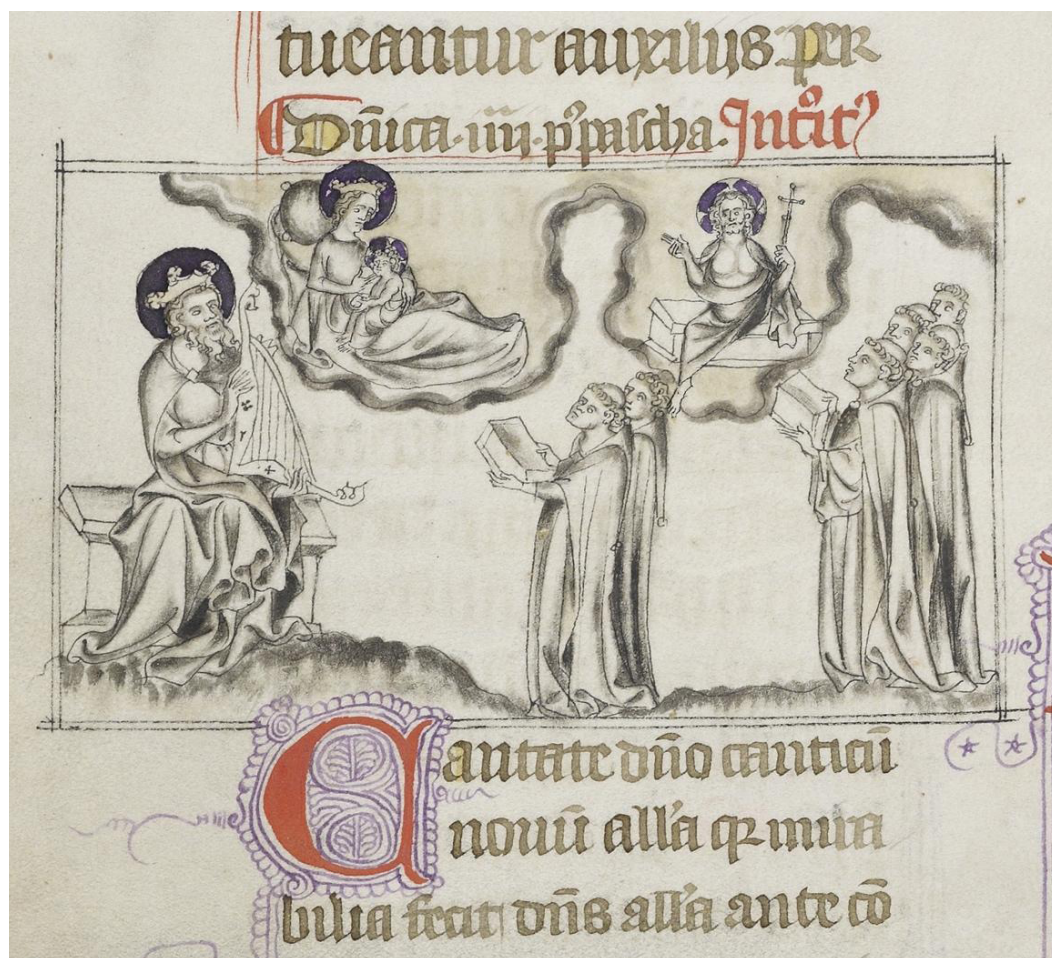 tueantur auxiliis per
Dñica·iiij·p̾pascha·Introit᷒
Cantate dño canticū
nouū all'a qꝛ mira
bilia fecit dñs all'a ante cō